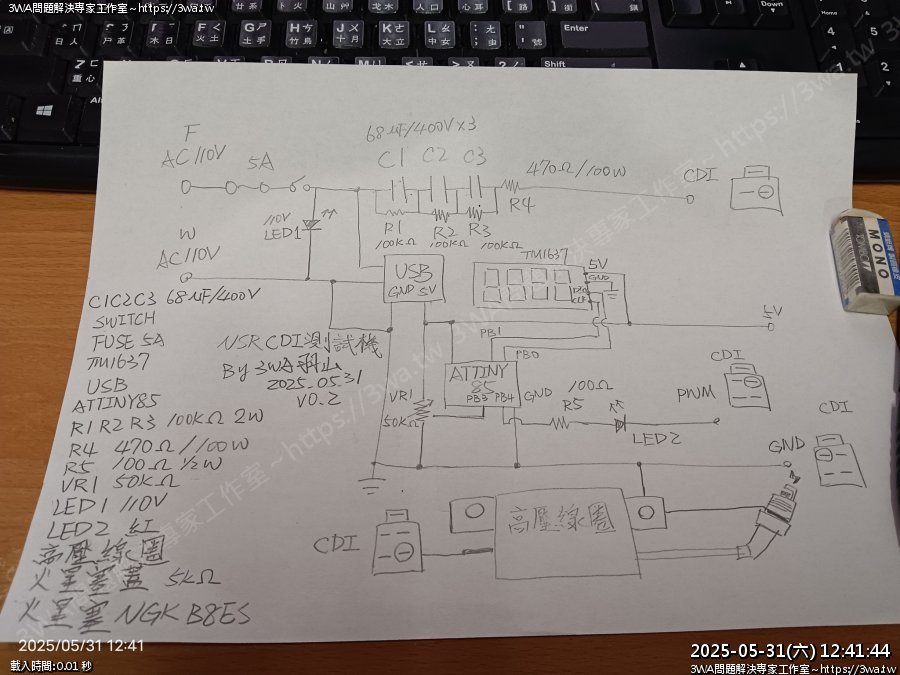 3WA問題解決專家工作室~https://3wa.tw
F
AC110V
5A
68uF/400V×3
C1 C2 C3
470Ω/100W
R4
CDI
110V
LED1
R1 R2 R3
100KΩ 100KΩ 100KΩ
W
AC110V
USB
GND 5V
TM1637
5V
GND
DIO
CLK
5V
C1C2C3 68uF/400V
SWITCH
FUSE 5A
TM1637
USB
ATTINY85
R1 R2 R3 100KΩ 2W
R4 470Ω/100W
R5 100Ω ½W
VR1 50KΩ
LED1 110V
LED2 紅
高壓線圈
火星塞蓋 5KΩ
火星塞 NGK B8ES
NSR CDI測試機
By 3WA羽山
2025.05.31
V0.2
PB1
PB0
ATTINY
85
PB3 PB4
GND
VR1
50KΩ
100Ω
R5
LED2
PWM
CDI
CDI
GND
CDI
高壓線圈
MONO
TOMBOW
Enter
Shift
Alt
Home
Down
2025/05/31 12:41
載入時間:0.01 秒
2025-05-31(六) 12:41:44
3WA問題解決專家工作室~https://3wa.tw